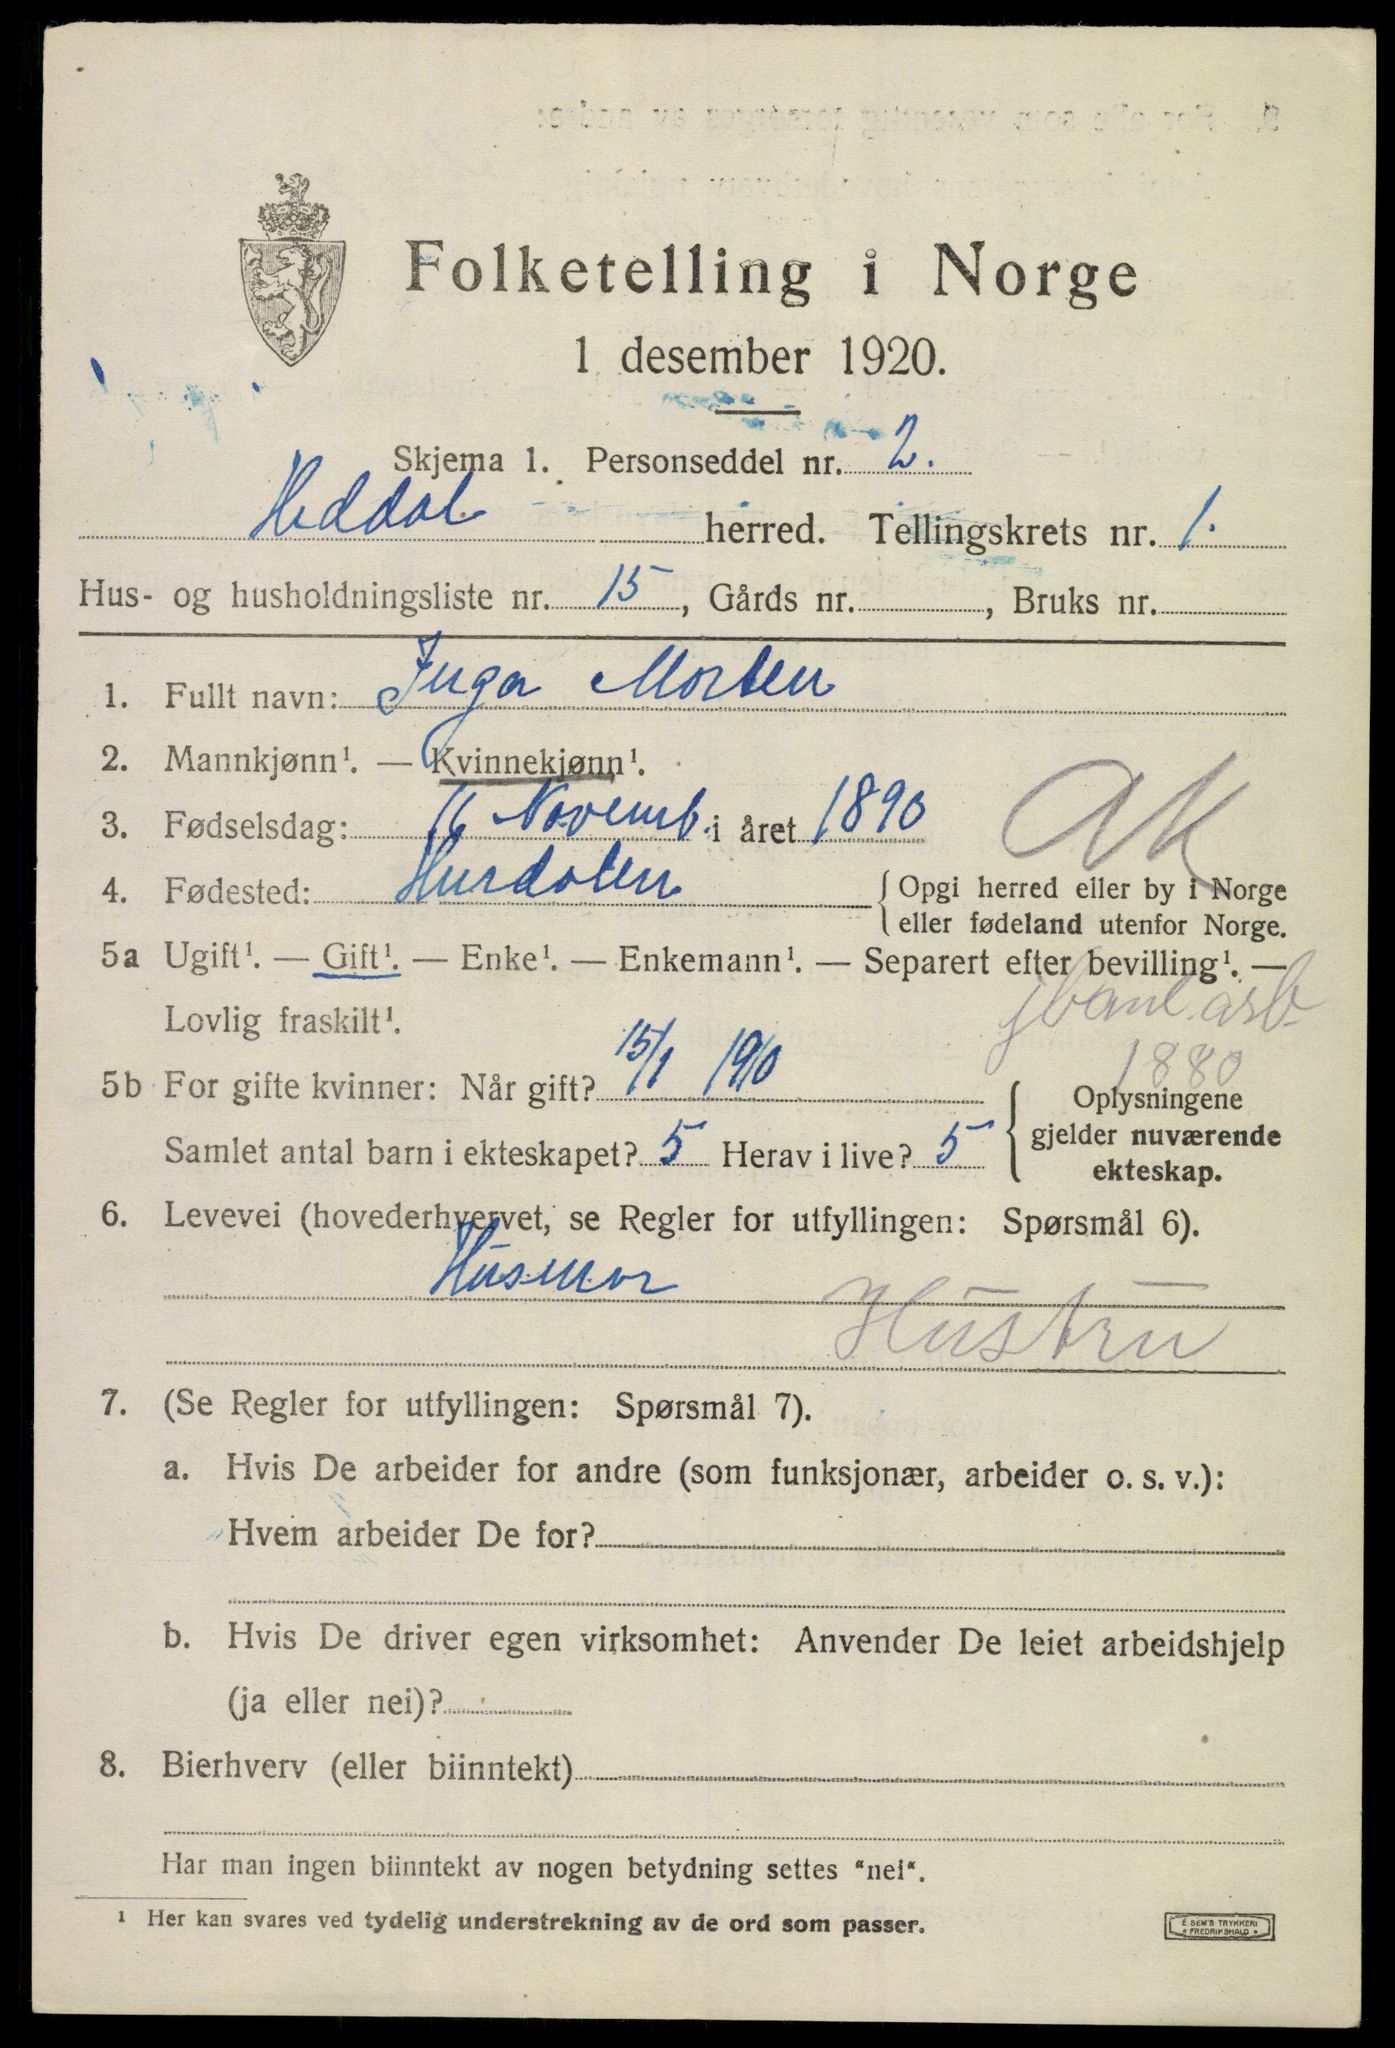 Folketelling i Norge
1 desember 1920.
Skjema 1. Personseddel nr. 2.
Heddal herred. Tellingskrets nr. 1.
Hus- og husholdningsliste nr. 15, Gårds nr. , Bruks nr.
1. Fullt navn: Inga Morten
2. Mannkjønn¹. — Kvinnekjønn¹.
3. Fødselsdag: 16 Novemb. i året 1890
AK
4. Fødested: Hurdalen { Opgi herred eller by i Norge
eller fødeland utenfor Norge.
5a Ugift¹. — Gift¹. — Enke¹. — Enkemann¹. — Separert efter bevilling¹. —
Lovlig fraskilt¹.
arb.
1880
5b For gifte kvinner: Når gift? 15/1 1910
Samlet antal barn i ekteskapet? 5 Herav i live? 5
{ Oplysningene
gjelder nuværende
ekteskap.
6. Levevei (hovederhvervet, se Regler for utfyllingen: Spørsmål 6).
Husmor
Hustru
7. (Se Regler for utfyllingen: Spørsmål 7).
a. Hvis De arbeider for andre (som funksjonær, arbeider o. s. v.):
Hvem arbeider De for?
b. Hvis De driver egen virksomhet: Anvender De leiet arbeidshjelp
(ja eller nei)?
8. Bierhverv (eller biinntekt)
Har man ingen biinntekt av nogen betydning settes "nei".
¹ Her kan svares ved tydelig understrekning av de ord som passer.
E. SEM'S TRYKKERI
FREDRIKSHALD